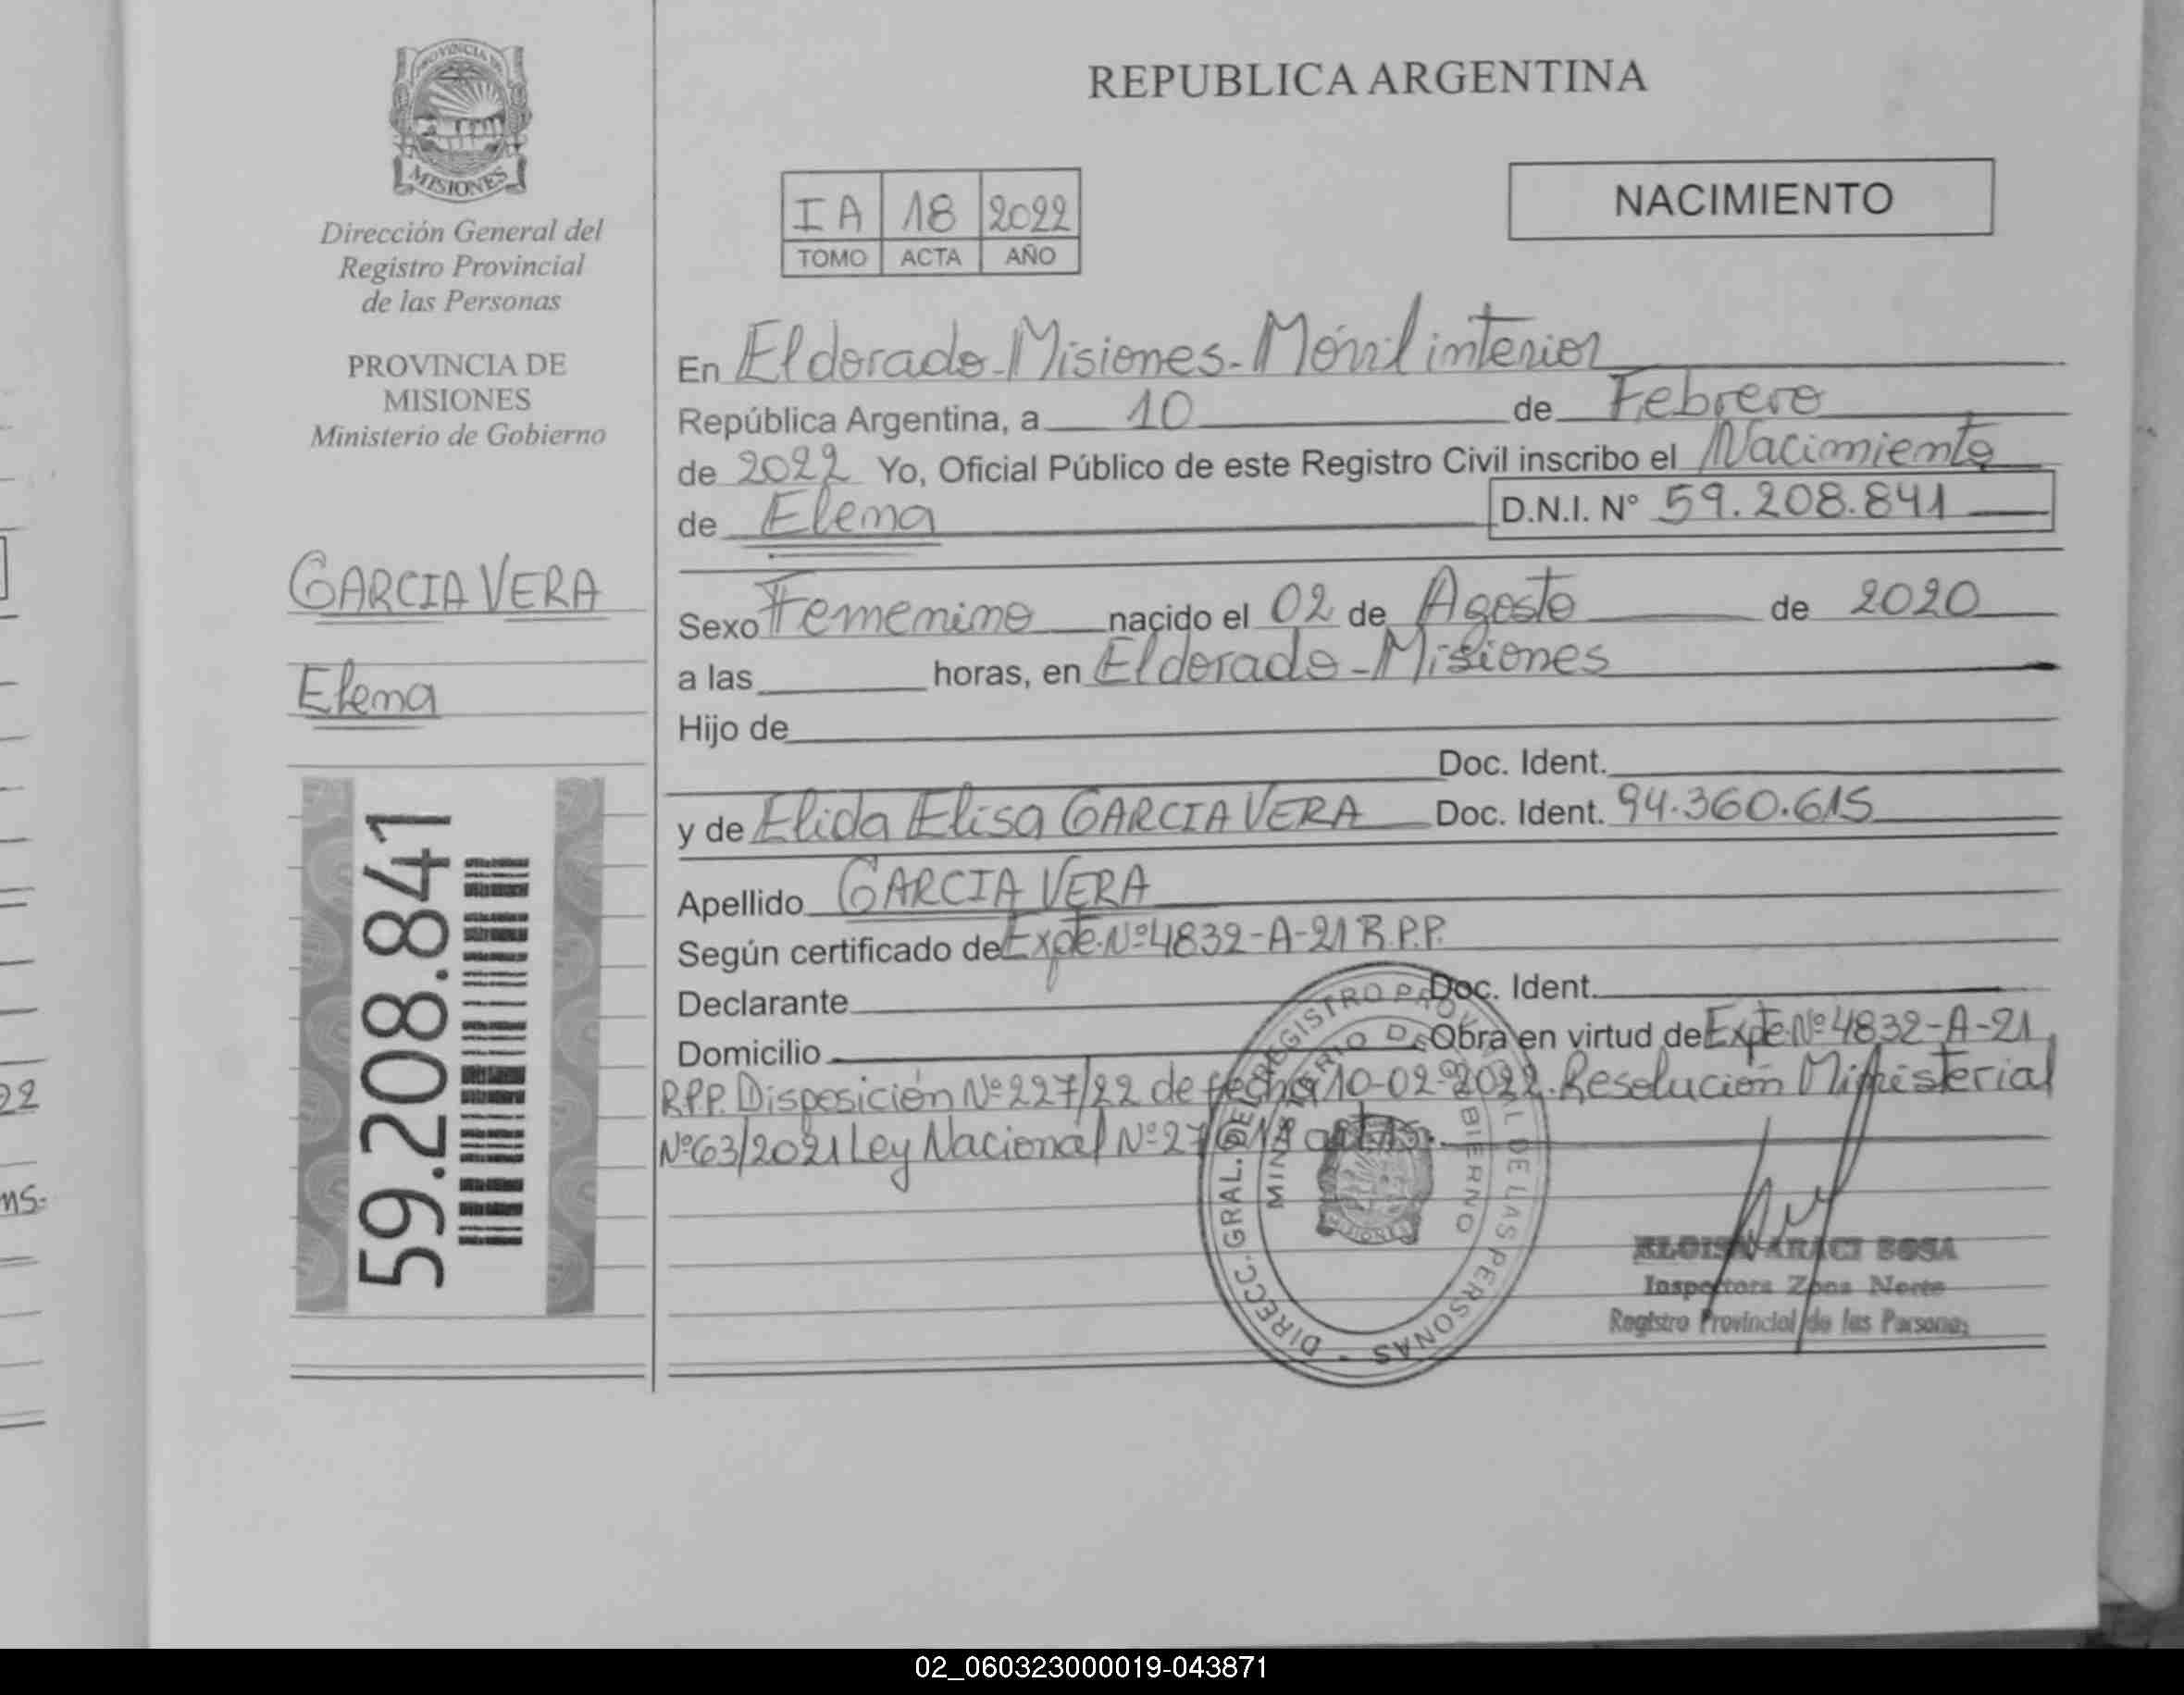 PROVINCIA DE
MISIONES
Dirección General del
Registro Provincial
de las Personas
PROVINCIA DE
MISIONES
Ministerio de Gobierno
GARCIA VERA
Elena
59.208.841
REPUBLICA ARGENTINA
NACIMIENTO
I A 18 2022
TOMO ACTA AÑO
En Eldorado-Misiones-Móvil interior
República Argentina, a 10 de Febrero
de 2022 Yo, Oficial Público de este Registro Civil inscribo el Nacimiento
de Elena D.N.I. Nº 59.208.841
Sexo Femenino nacido el 02 de Agosto de 2020
a las horas, en Eldorado-Misiones
Hijo de
Doc. Ident.
y de Elida Elisa GARCIA VERA Doc. Ident. 94.360.615
Apellido GARCIA VERA
Según certificado de Expte.Nº4832-A-21 R.P.P.
Declarante Doc. Ident.
Domicilio Obra en virtud de Expte.Nº4832-A-21
R.P.P. Disposición Nº227/22 de fecha 10-02-2022. Resolución Ministerial
Nº63/2021 Ley Nacional Nº
DIRECC. GRAL. DE REGISTRO PROVINCIAL DE LAS PERSONAS -
MINISTERIO DE GOBIERNO
MISIONES
ELOISA ARACI SOSA
Inspectora Zona Norte
Registro Provincial de las Personas
22
ns-
02_060323000019-043871